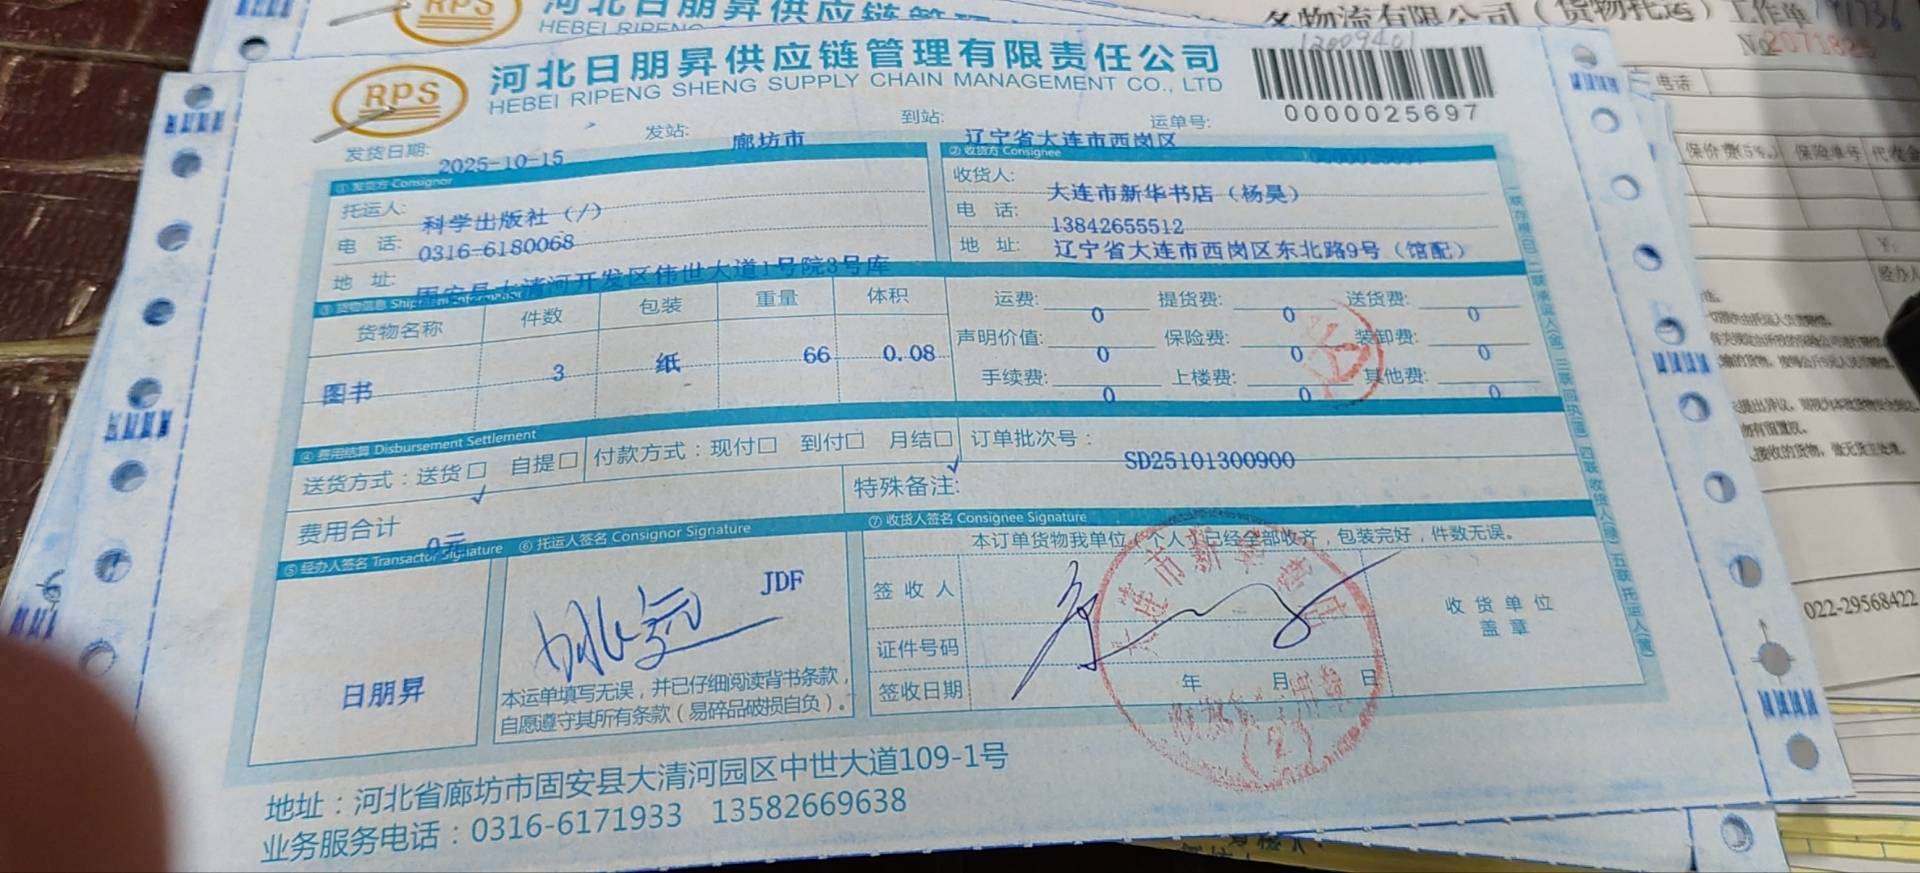 RPS
河北日朋昇供应链管理有限责任公司
HEBEI RIPENG SHENG SUPPLY CHAIN MANAGEMENT CO., LTD
12009401
0000025697
发货日期: 2025-10-15
发站: 廊坊市
到站: 辽宁省大连市西岗区
运单号:
① 发货方 Consignor
托运人: 科学出版社（/）
电 话: 0316-6180068
地 址: 固安县大清河开发区伟世大道1号院3号库
② 收货方 Consignee
收货人: 大连市新华书店（杨昊）
电 话: 13842655512
地 址: 辽宁省大连市西岗区东北路9号（馆配）
③ 货物信息 Shipment Information
货物名称 件数 包装 重量 体积
图书 3 纸 66 0.08
运费: 0 提货费: 0 送货费: 0
声明价值: 0 保险费: 0 装卸费: 0
手续费: 0 上楼费: 0 其他费: 0
④ 费用结算 Disbursement Settlement
送货方式：送货□ 自提□ 付款方式：现付□ 到付□ 月结□
√ √
订单批次号： SD25101300900
费用合计 0元
特殊备注:
⑤ 经办人签名 Transactor Signature
日朋昇
⑥ 托运人签名 Consignor Signature
JDF
本运单填写无误，并已仔细阅读背书条款，
自愿遵守其所有条款（易碎品破损自负）。
⑦ 收货人签名 Consignee Signature
本订单货物我单位（个人）已经全部收齐，包装完好，件数无误。
签 收 人
证件号码
签收日期 年 月 日
收 货 单 位
盖 章
(2)
地址：河北省廊坊市固安县大清河园区中世大道109-1号
业务服务电话：0316-6171933 13582669638
RPS
物流有限公司（货物托运）工作单
电话
保价费(5‰) 保险单号
022-29568422